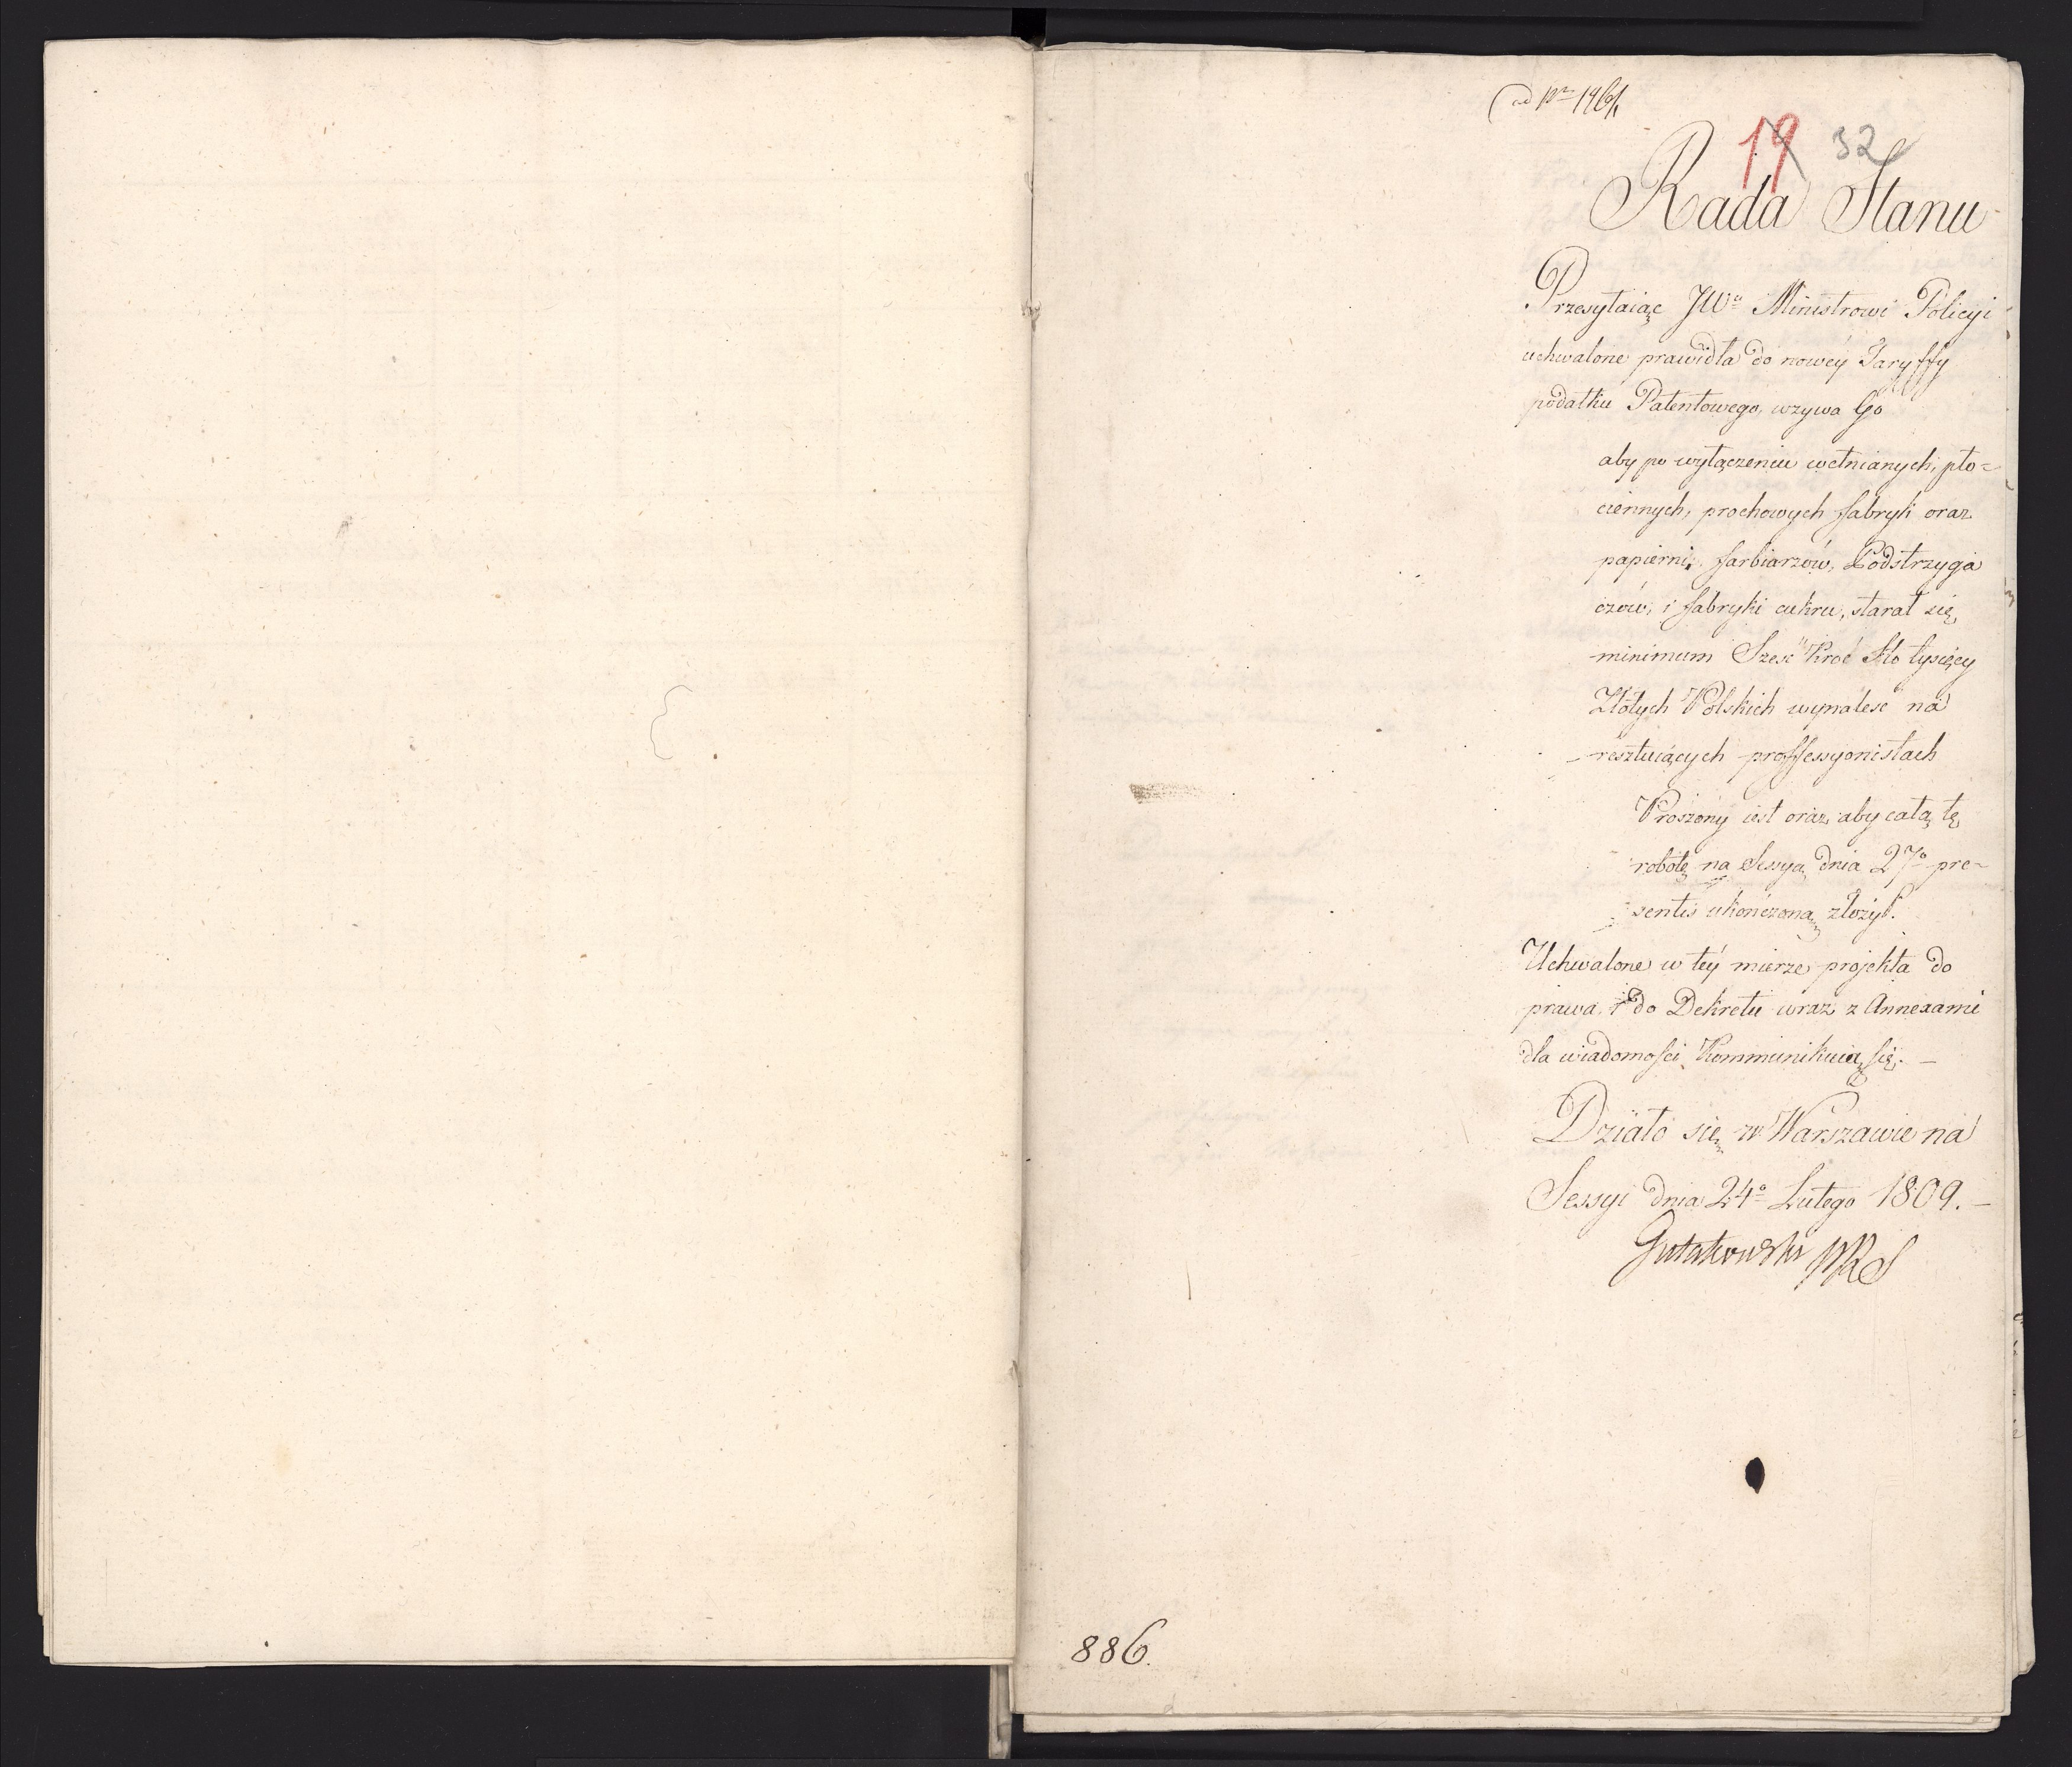 19 32
Rada Stanu
Przesyłaiąc JWu Ministrowi Policyi
uchwalone prawidła do nowey Taryffy
podatku Patentowego, wzywa Go
aby po wyłączeniu wełnianych, pło=
ciennych, prochowych fabryk oraz
papierni, farbiarzów, Podstrzyga
czów, i fabryki cukru, starał się
minimum Sześć Kroć Sto tysięcy
Złotych Polskich wynaleść na
resztuiących proffessyonistach
Proszony iest oraz, aby całą tę
robotę na Sessyą dnia 27o pre=
sentis ukończoną złożył.
Uchwalone w tey mierze projekta do
prawa, i do Dekretu wraz z Annexami
dla wiadomości Kommunikuią się. —
Działo się w Warszawie na
Sessyi dnia 24o Lutego 1809. —
Gutakowski PRS
886.